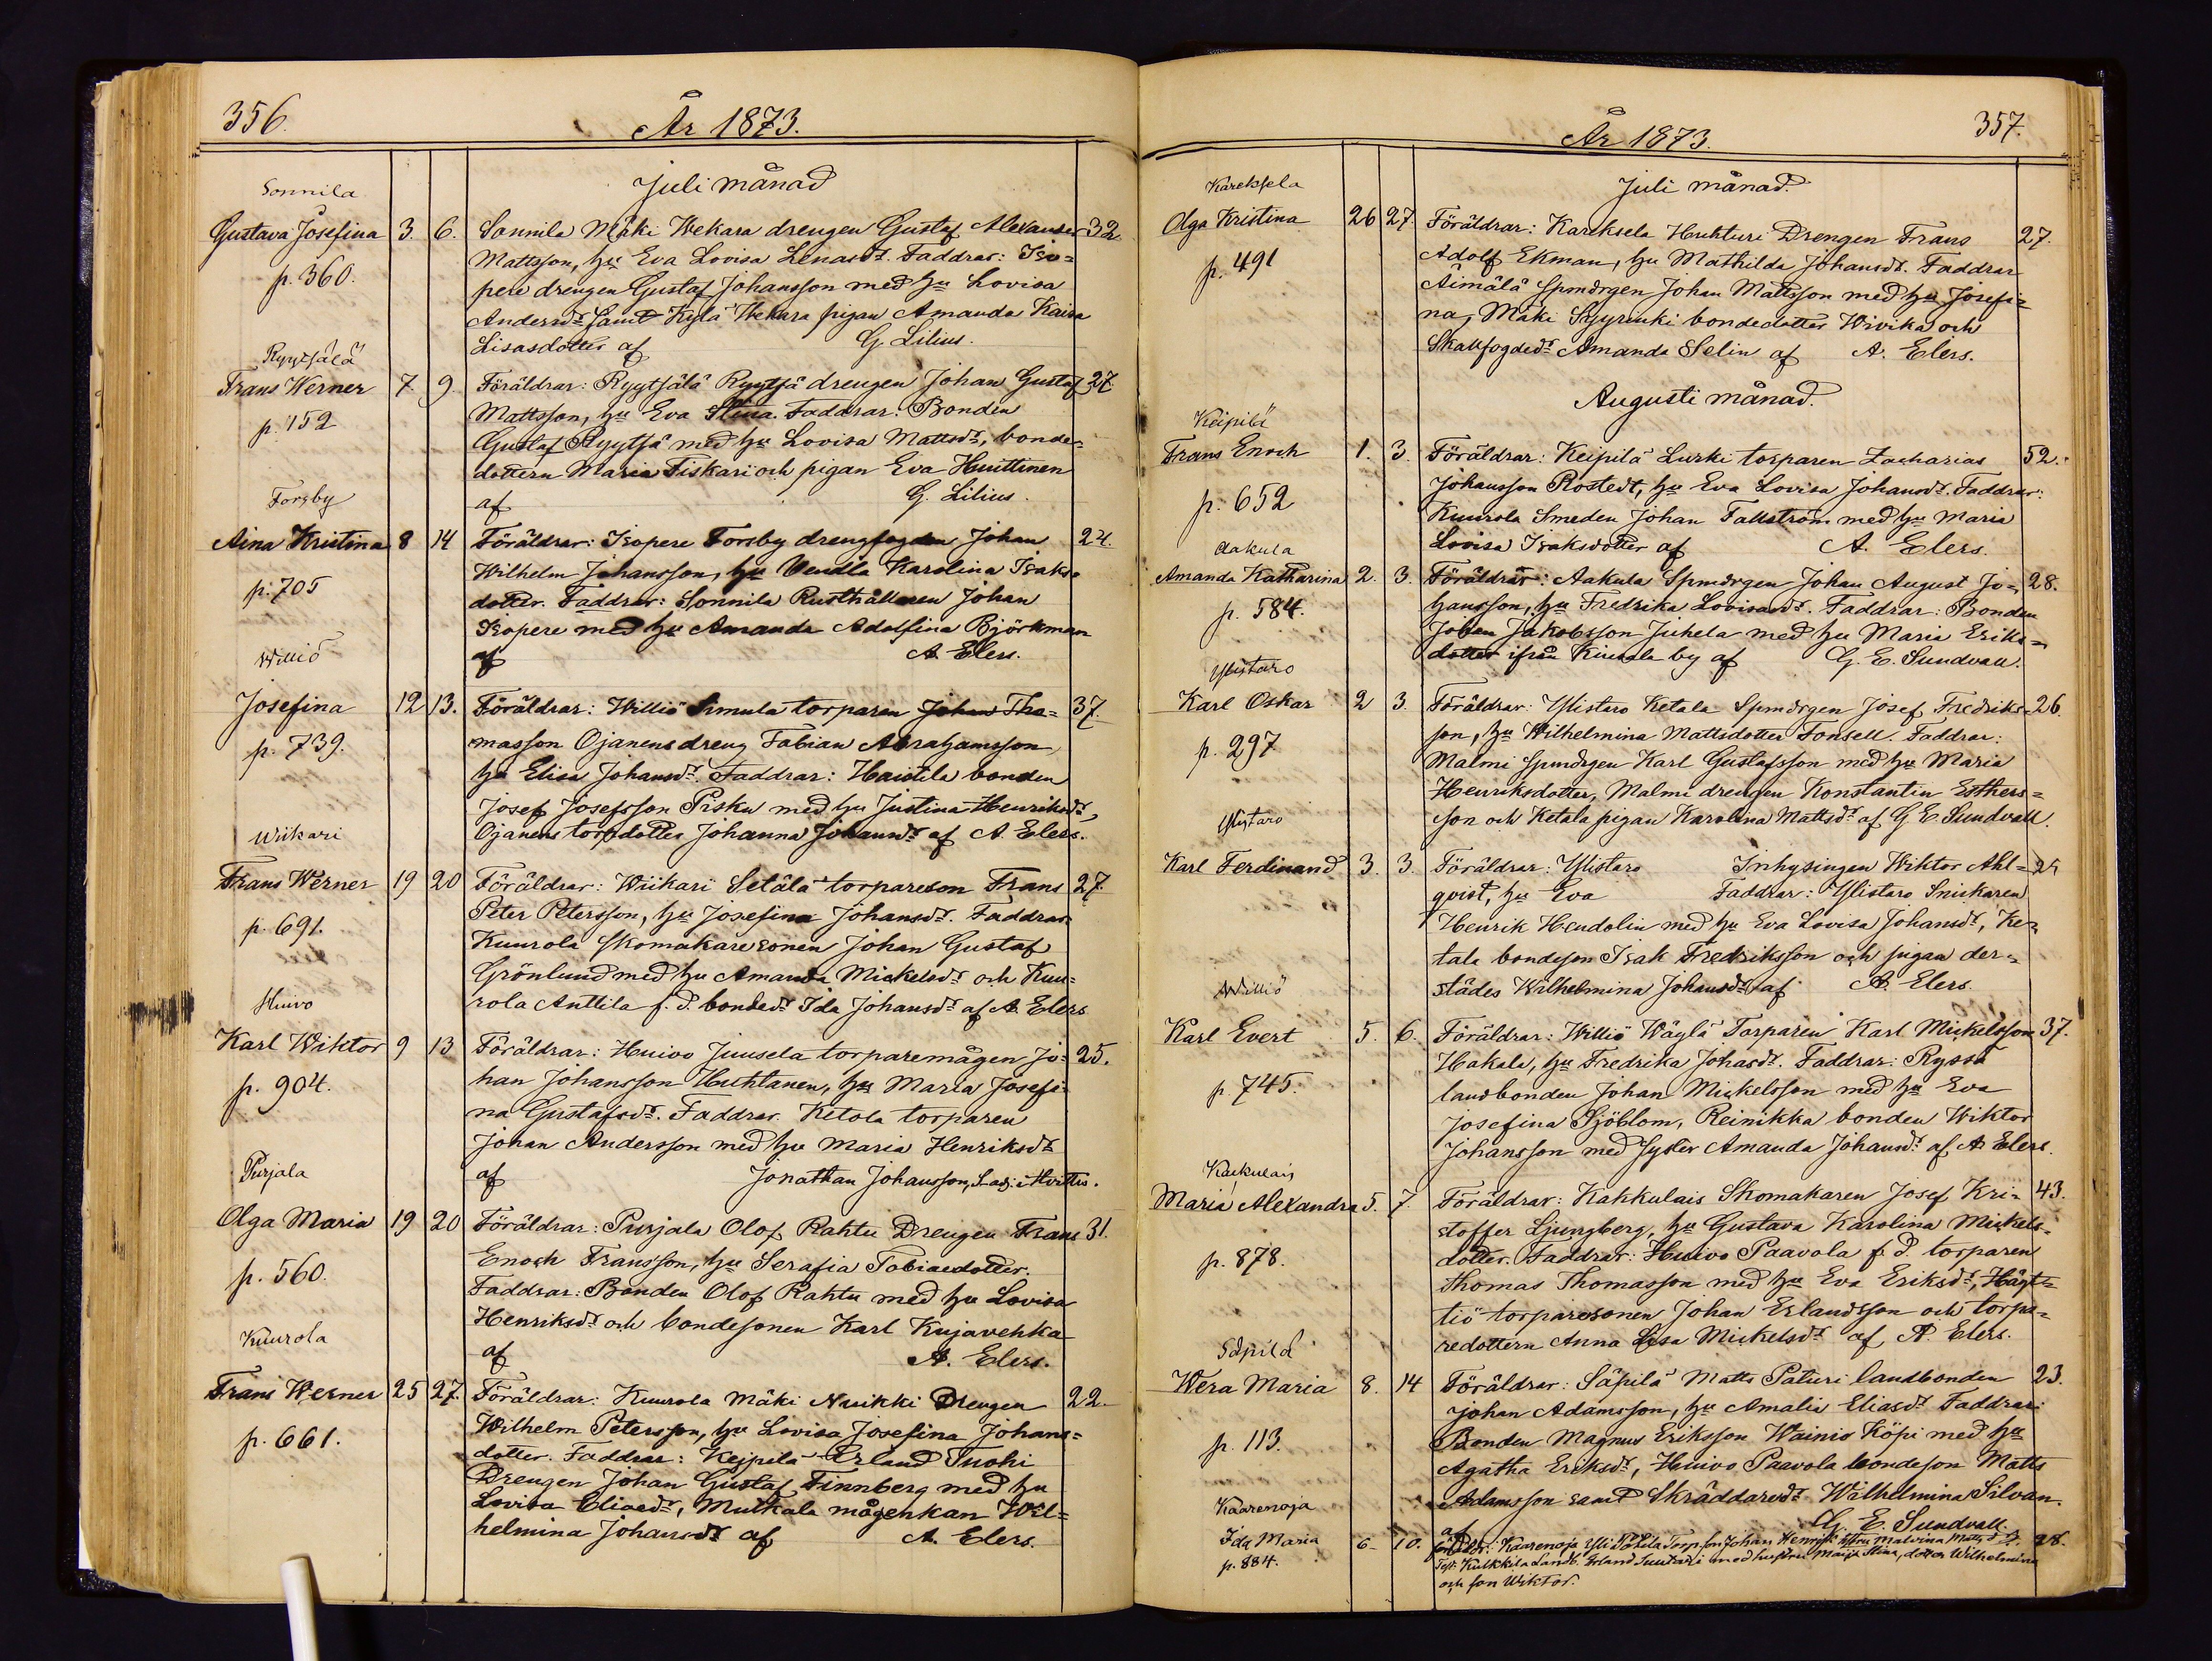 356.
År 1873.
Juli månad
Sonnila
Gustava Josefina 3. 6. Sonnila Mäki Wekara drengen Gustaf Alexander 32.
p. 360. Mattsson, hu Eva Lovisa Lenasdr. Faddrar: Iso=
pere drengen Gustaf Johansson med hu Lovisa
Andersdr samt Kylä Wekara pigan Amanda Kaisa
Lisasdotter af G. Lilius.
Ryytsälä
Frans Werner 7. 9. Föräldrar: Ryytsälä Ryytsä drengen Johan Gustaf 27.
p. 152 Mattsson, hu Eva Stina. Faddrar: Bonden
Gustaf Ryytsä med hu Lovisa Mattsdr, bonde=
dottern Maria Fiskari och pigan Eva Huittinen
af G. Lilius.
Forsby
Aina Kristina 8 14 Föräldrar: Isopere Forsby drengfogden Johan 24.
p. 705 Wilhelm Johansson, hu Vendla Karolina Isaks=
dotter. Faddrar: Sonnila Rusthållaren Johan
Isopere med hu Amanda Adolfina Björkman
af A. Elers.
Williö
Josefina 12 13. Föräldrar: Williö Simula torparen Johan Tho= 37.
p. 739. masson Ojanens dreng Fabian Abrahamsson,
hu Elisa Johansdr. Faddrar: Haistila bonden
Josef Josefsson Pisku med hu Justina Henriksdr,
Ojanens torpdotter Johanna Johansdr af A. Elers.
Wiikari
Frans Werner 19 20 Föräldrar: Wiikari Setälä torpareson Frans 27.
p. 691. Peter Petersson, hu Josefina Johansdr. Faddrar:
Kuurola skomakaresonen Johan Gustaf
Grönlund med hu Amanda Mickelsdr och Kuu=
rola Anttila f. d. bondedr Ida Johansdr af A. Elers
Huivo
Karl Wiktor 9 13 Föräldrar: Huivo Juusela torparemågen Jo= 25.
p. 904. han Johansson Huhtanen, hu Maria Josefi=
na Gustafsdr. Faddrar. Ketola torparen
Johan Andersson med hu Maria Henriksdr
af Jonathan Johansson, S. adj. i Hvittis.
Purjala
Olga Maria 19 20 Föräldrar: Purjala Olof Rahtu Drengen Frans 31.
p. 560. Enoch Fransson, hu Serafia Tobiaedotter.
Faddrar: Bonden Olof Rahtu med hu Lovisa
Henriksdr och bondesonen Karl Kujavehka
af A. Elers.
Kuurola
Frans Werner 25 27. Föräldrar: Kuurola Mäki Nuikki Drengen 22.
p. 661. Wilhelm Petersson, hu Lovisa Josefina Johans=
dotter. Faddrar: Keipilä Erland Tuohi
Drengen Johan Gustaf Finnberg med hu
Lovisa Eliaedr, Muikala mågenkan Wil=
helmina Johansdr af A. Elers.
357.
År 1873.
Juli månad.
Kareksela
Olga Kristina 26 27. Föräldrar: Kareksela Huhturi Drengen Frans 27.
p. 491 Adolf Ekman, hu Mathilda Johansdr. Faddrar
Äimälä Spmdrgen Johan Mattsson med hu Josefi=
na, Mäki Syyrinki bondedotter Wivika och
Skallfogdedr Amanda Selin af A. Elers.
Augusti månad.
Keipilä
Frans Enoch 1. 3. Föräldrar: Keipilä Lurki torparen Zacharias 52.
p. 652 Johansson Rostedt, hu Eva Lovisa Johansdr. Faddrar:
Kuurola Smeden Johan Fallström med hu Maria
Lovisa Isaksdotter af A. Elers.
Aakula
Amanda Katharina 2. 3. Föräldrar: Aakula Spmdrgen Johan August Jo= 28.
p. 584. hansson, hu Fredrika Lovisasdr. Faddrar: Bonden
Johan Jakobsson Juhela med hu Maria Eriks=
dotter ifrån Kiusala by af G. E. Sundvall.
Ylistaro
Karl Oskar 2 3. Föräldrar: Ylistaro Ketala Spmdrgen Josef Fredriks= 26.
p. 297 son, hu Wilhelmina Mattsdotter Fonsell. Faddrar:
Malmi Spmdrgen Karl Gustafsson med hu Maria
Henriksdotter, Malmi drengen Konstantin Esthers=
son och Ketala pigan Karolina Mattsdr af G. E. Sundvall.
Ylistaro
Karl Ferdinand 3. 3. Föräldrar: Ylistaro Inhysingen Wiktor Ahl=
qvist, hu Eva Faddrar: Ylistaro Snickaren
Henrik Hendolin med hu Eva Lovisa Johansdr, Ke=
tala bondeson Isak Fredriksson och pigan der=
städes Wilhelmina Johansdr af A. Elers.
Williö
Karl Evert 5. 6. Föräldrar: Williö Wäylä Torparen Karl Mickelsson 37.
p. 745. Hakala, hu Fredrika Johasdr. Faddrar: Ryssä
landbonden Johan Mickelsson med hu Eva
Josefina Sjöblom, Reinikka bonden Wiktor
Johansson med syster Amanda Johansdr af A. Elers.
Kakkulais
Maria Alexandra 5. 7. Föräldrar: Kakkulais Skomakaren Josef Kri= 43.
p. 878. stoffer Ljungberg, hu Gustava Karolina Mickels=
dotter. Faddrar: Huivo Paavola f. d. torparen
Thomas Thomasson med hu Eva Eriksdr, Häyt=
tiö torparesonen Johan Erlandsson och torpa=
redottern Anna Lisa Mickelsdr af A. Elers.
Säpilä
Wera Maria 8. 14 Föräldrar: Säpilä Matts Paturi landbonden 23.
p. 113. Johan Adamsson, hu Amalia Eliasdr Faddrar:
Bonden Magnus Eriksson Wainio Köpi med hu
Agatha Eriksdr, Huivo Paavola bondeson Matts
Adamsson samt Skräddaredr Wilhelmina Silvan.
af G. E. Sundvall.
Kaarenoja
Ida Maria 6. 10. föräldr: Kaarenoja Yli Torp.fon Johan Henriks. hstru Malvina Mattsdr. 28.
p. 884. Test. Kukkila Landb. Erland Suutari med hustru Maija Stina, dotter Wilhelmina
och son Wiktor.